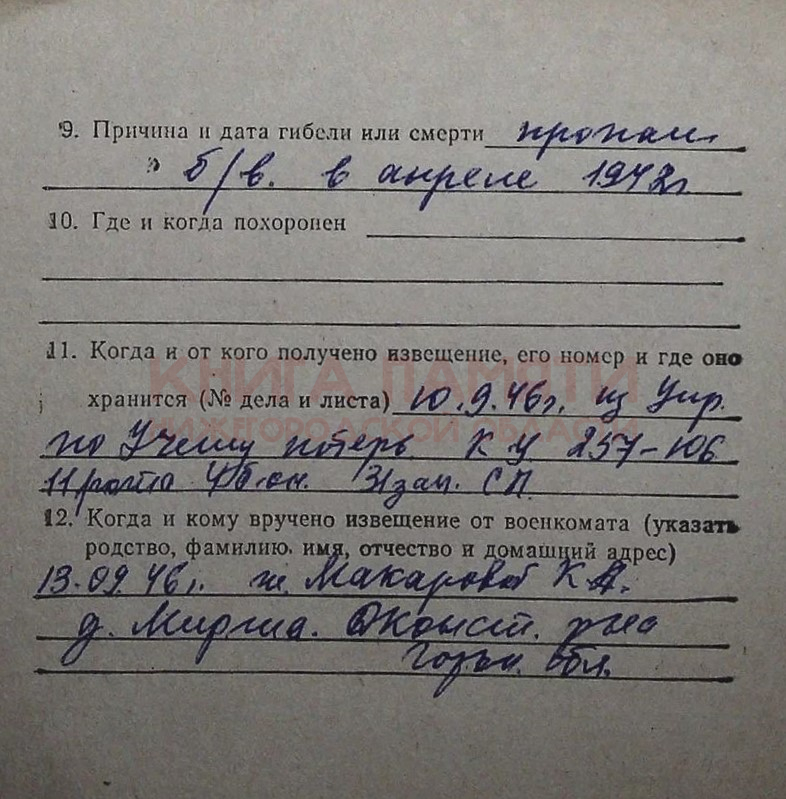 9. Причина и дата гибели или смерти пропал
б/в. в апреле 1942г
10. Где и когда похоронен
11. Когда и от кого получено извещение, его номер и где оно
КНИГА ПАМЯТИ
хранится (№ дела и листа) 10.9.46г. из Упр.
НИЖЕГОРОДСКОЙ ОБЛАСТИ
по Учету потерь К У 257-106
11 рота 4б-он. 31 зап. СП
12. Когда и кому вручено извещение от военкомата (указать
родство, фамилию, имя, отчество и домашний адрес)
13.09.46г. ж. Макаровой К
д. Мирша. Д Конст. р-на
Горьк. обл.